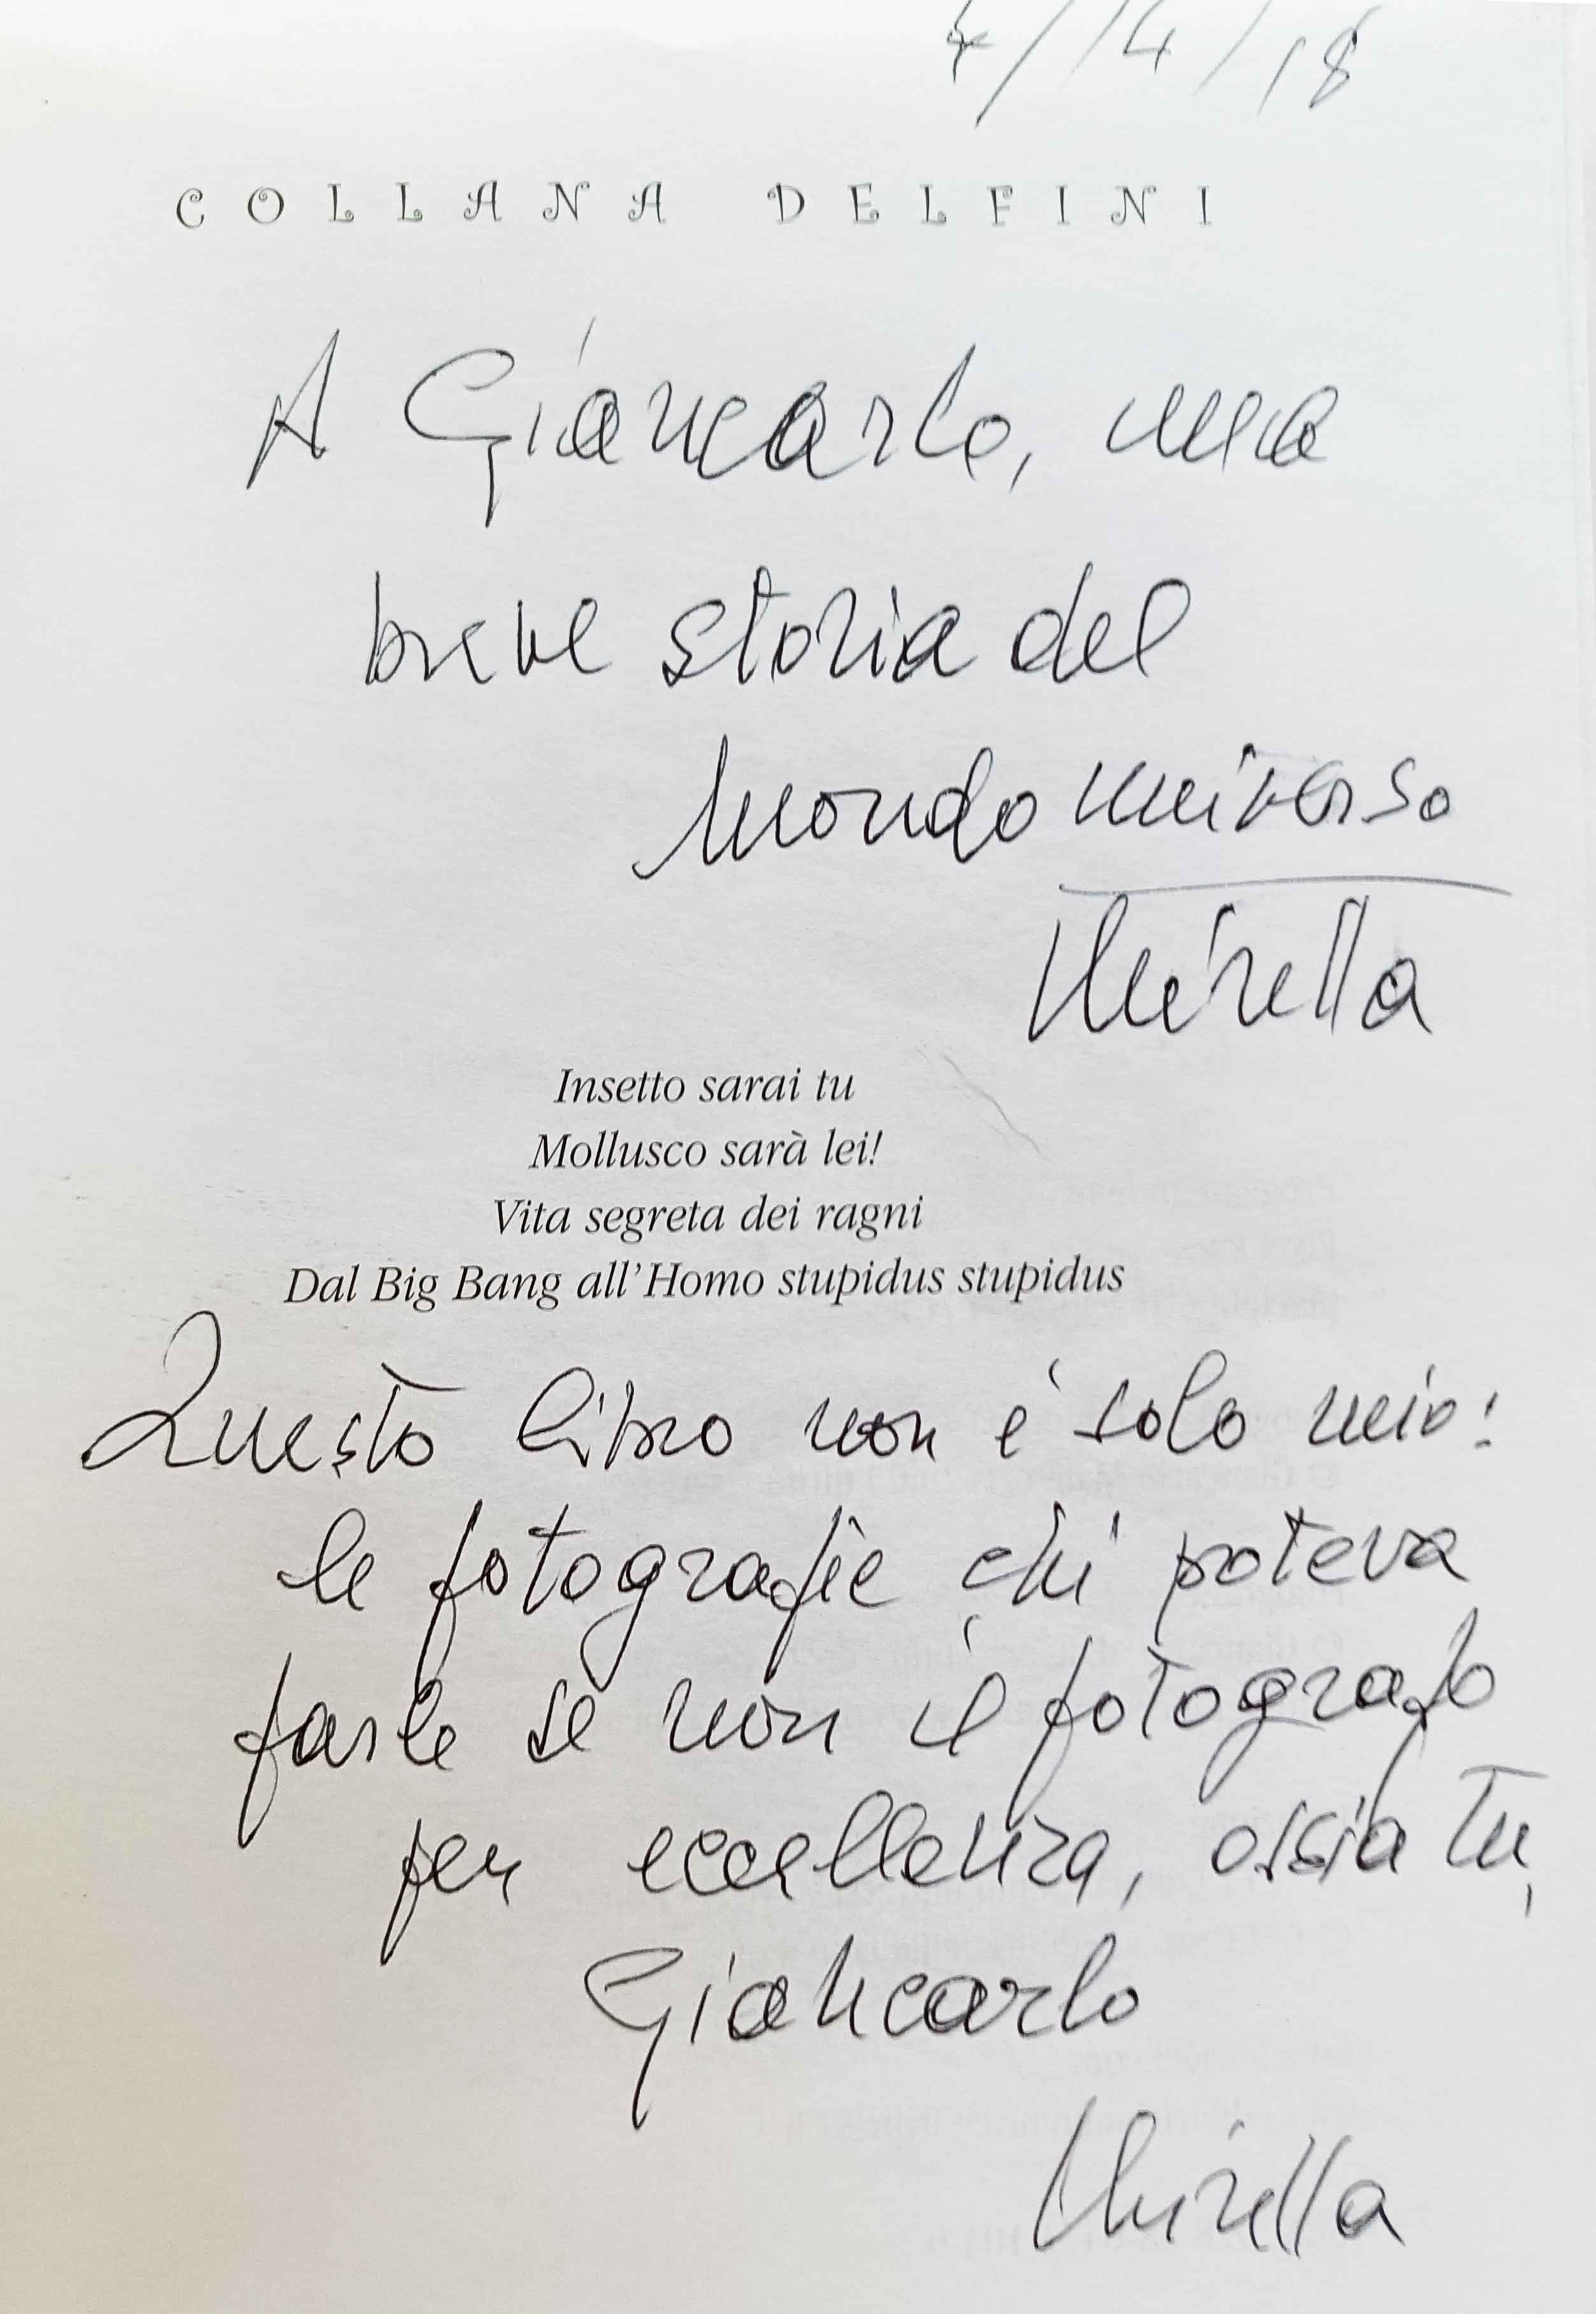 4/4/18
COLLANA DELFINI
A Giancarlo, una
breve storia del
mondo universo
Mirella
Insetto sarai tu
Mollusco sarà lei!
Vita segreta dei ragni
Dal Big Bang all'Homo stupidus stupidus
Questo libro non è solo mio:
le fotografie chi poteva
farle se non il fotografo
per eccellenza, ossia tu,
Giancarlo
Mirella